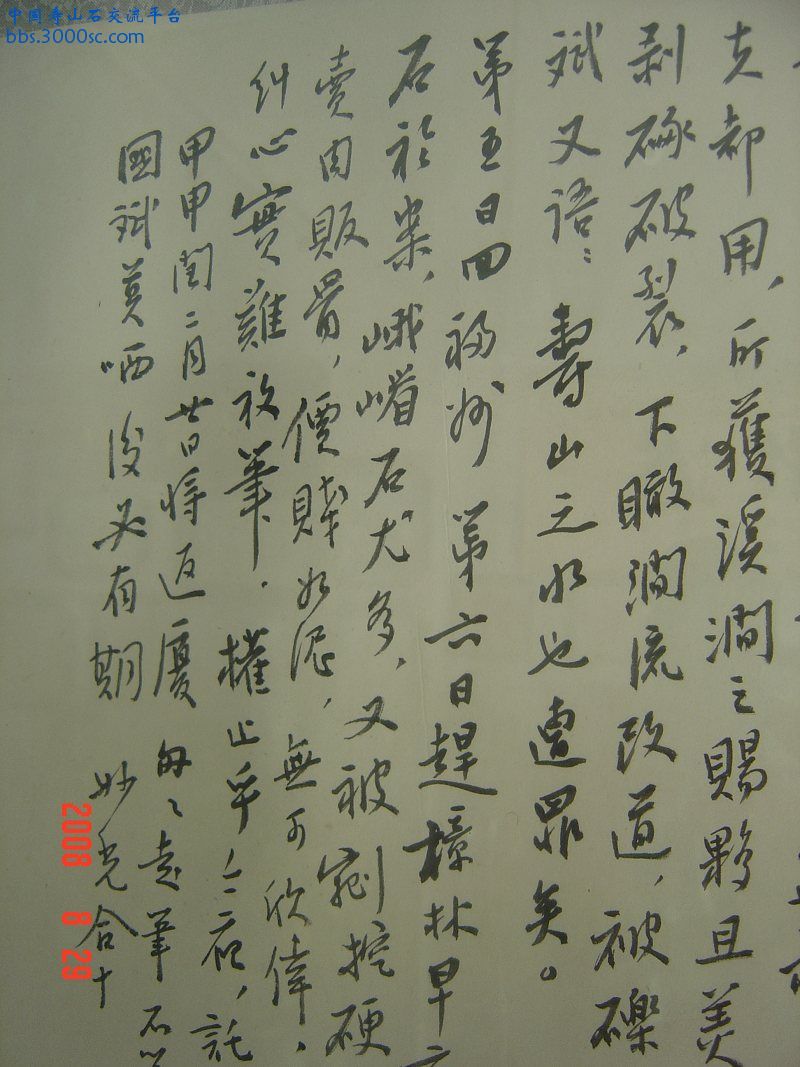 中国寿山石交流平台
bbs.3000sc.com
克都用，所獲溪澗之賜夥且美
剥破裂，下瞰澗流改道，被礫
斌又語：壽山之水也遭罪矣。
第五日回福州 第六日趕樟林早
石於案，峨嵋石尤多，又被剜挖硬
賣肉販骨，價賤如泥，無可欣偉，
糾心實難放筆．權止乎，託
甲申閏二月廿日將返廈 匆匆走筆
國斌莫哂後必有期 妙光合十
2008 8 29